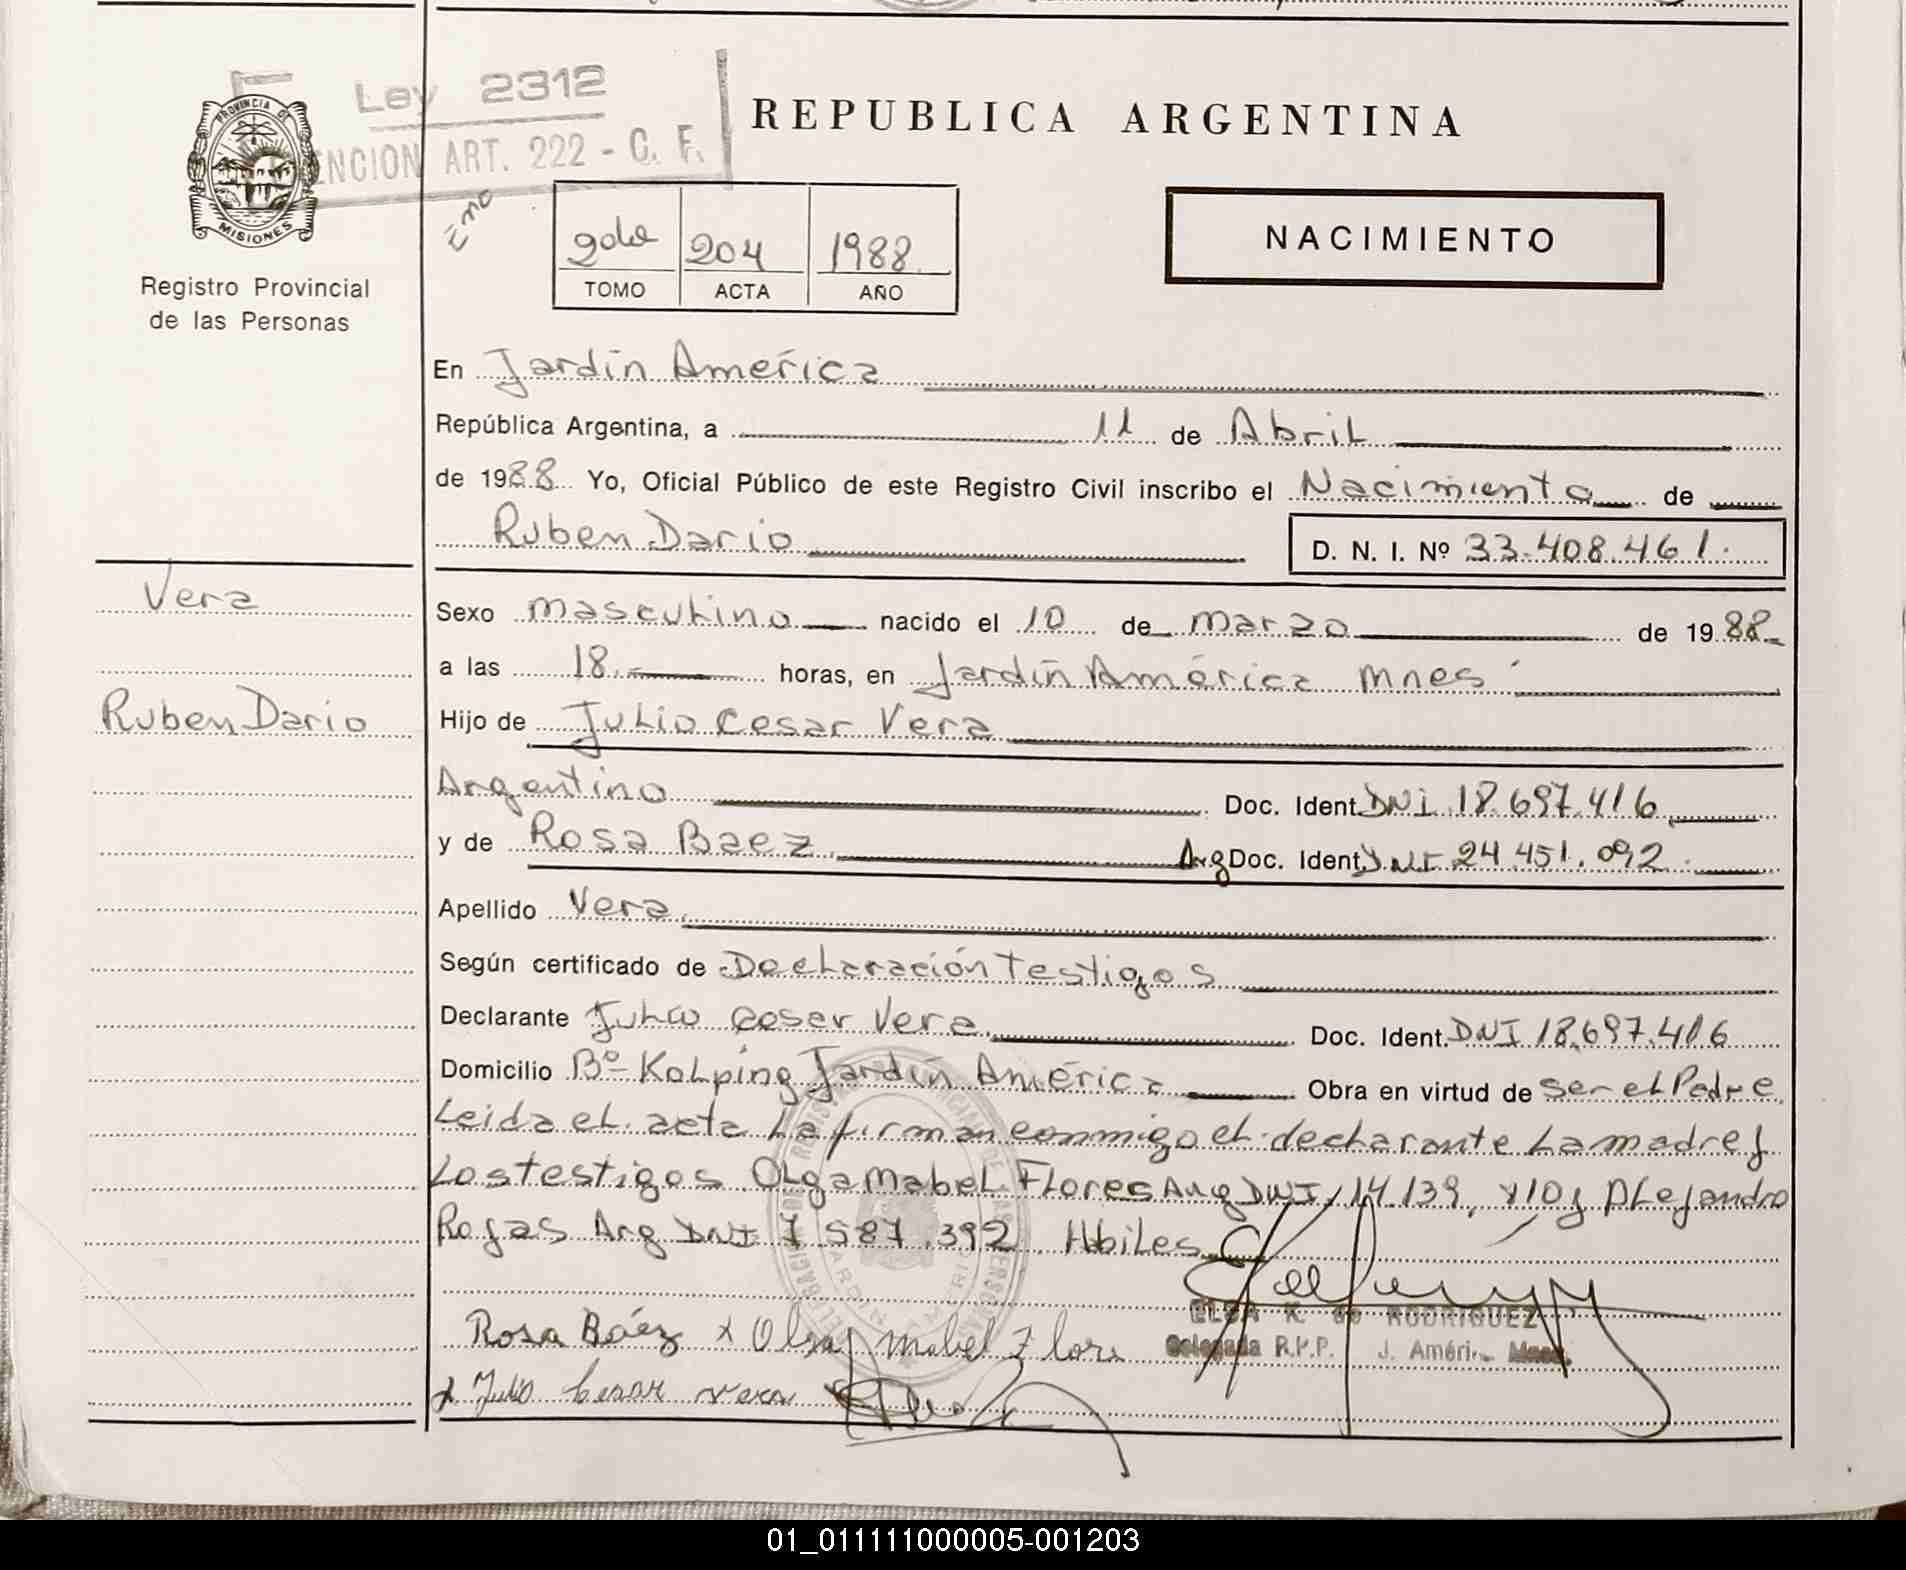 Ley 2312
ENCION ART. 222 - C. F.
PROVINCIA DE
MISIONES
Registro Provincial
de las Personas
REPUBLICA ARGENTINA
2do 204 1988
TOMO ACTA AÑO
NACIMIENTO
En Jardín América
República Argentina, a 11 de Abril
de 1988 Yo, Oficial Público de este Registro Civil inscribo el Nacimiento de
Ruben Dario D. N. I. Nº 33.408.461.
Vera
Ruben Dario
Sexo masculino nacido el 10 de marzo de 1988
a las 18. horas, en Jardín América Mnes
Hijo de Julio Cesar Vera
Argentino Doc. Ident. DNI 18.697.416
y de Rosa Baez Arg Doc. Ident. DNI 24.451.092.
Apellido Vera
Según certificado de Declaración Testigos
Declarante Julio Cesar Vera Doc. Ident. DNI 18.697.416
Domicilio Bº Kolping Jardín América Obra en virtud de ser el Padre
Leida el acta la firman conmigo el declarante la madre y
Los testigos Olga Mabel Flores Arg DNI 14.139. y Alejandro
Rojas Arg DNI 7 587.392 Habiles
ELSA K. de RODRIGUEZ
Delegada R.P.P. J. Améri
Rosa Báez x Olga Mabel Flore
x Julio Cesar Vera
01_011111000005-001203